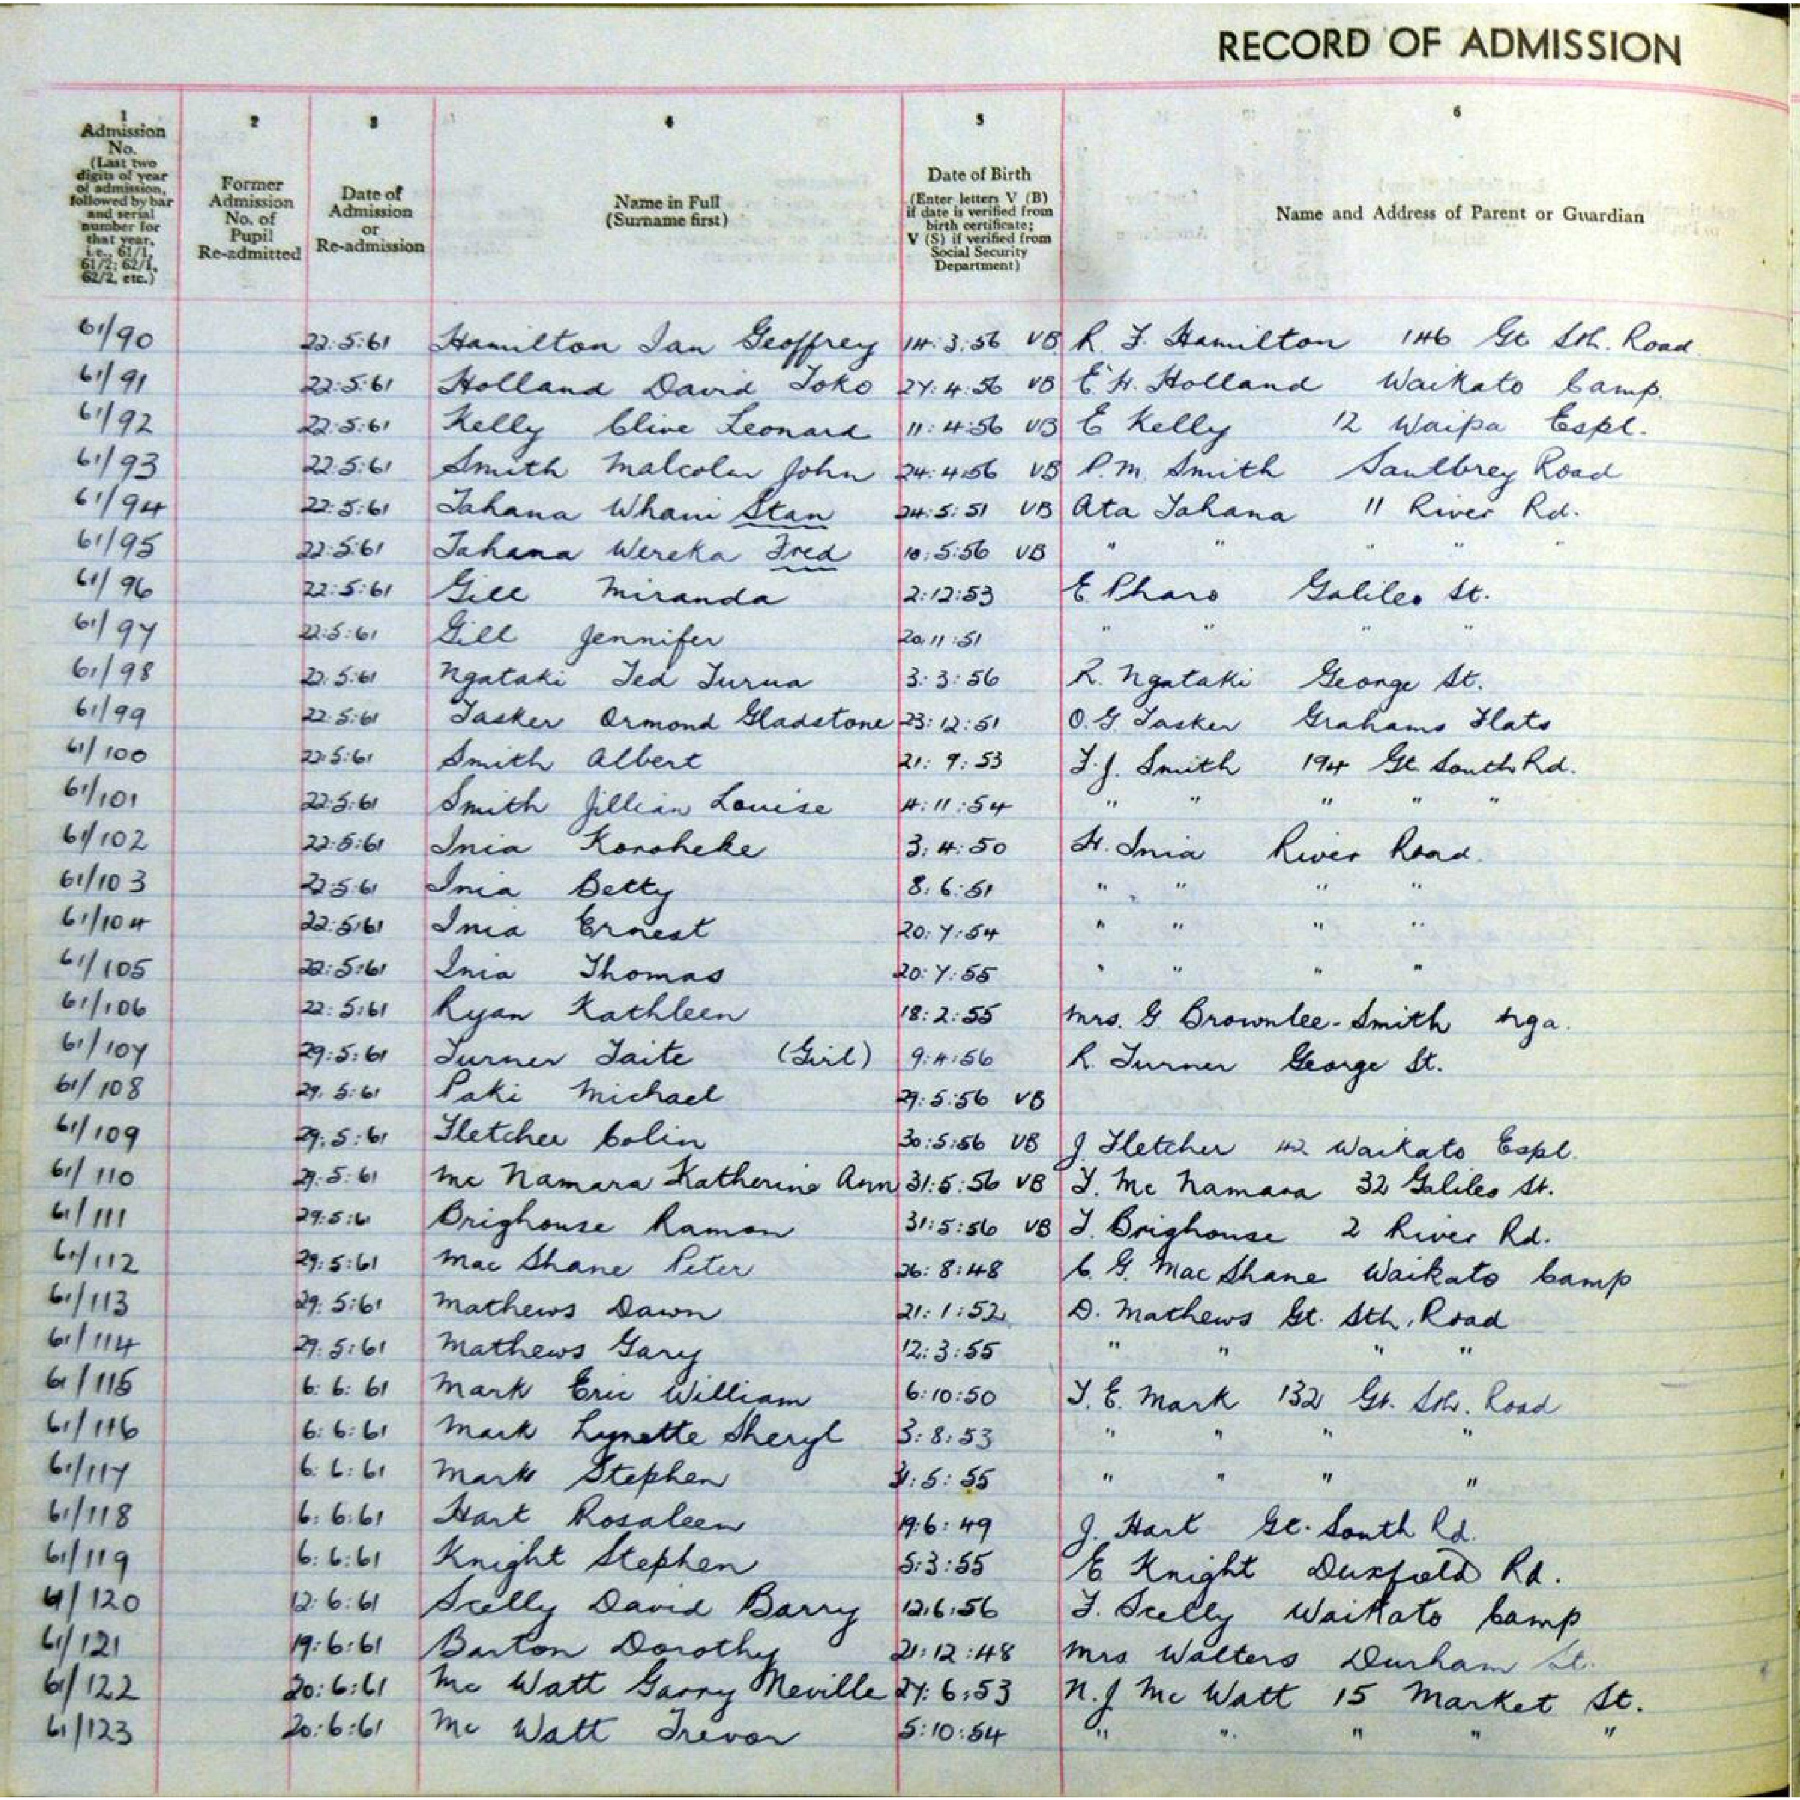 RECORD OF ADMISSION
1 2 3 4 5 6
Admission No. (Last two digits of year of admission, followed by bar and serial number for that year, i.e., 61/1, 61/2; 62/1, 62/2, etc.)
Former Admission No. of Pupil Re-admitted
Date of Admission or Re-admission
Name in Full (Surname first)
Date of Birth (Enter letters V (B) if date is verified from birth certificate; V (S) if verified from Social Security Department)
Name and Address of Parent or Guardian
61/90 22:5:61 Hamilton Ian Geoffrey 14:3:56 VB R. F. Hamilton 146 Gt Sth. Road
61/91 22:5:61 Holland David Toko 27:4:56 VB E. H. Holland Waikato Camp.
61/92 22:5:61 Kelly Clive Leonard 11:4:56 VB E Kelly 12 Waipa Espl.
61/93 22:5:61 Smith Malcolm John 24:4:56 VB P. M. Smith Saulbrey Road
61/94 22:5:61 Tahana Whani Stan 24:5:51 VB Ata Tahana 11 River Rd.
61/95 22:5:61 Tahana Wereka Fred 10:5:56 VB " " " " "
61/96 22:5:61 Gill Miranda 2:12:53 E Pharo Galileo St.
61/97 22:5:61 Gill Jennifer 20:11:51 " " " "
61/98 22:5:61 Ngataki Ted Turua 3:3:56 R. Ngataki George St.
61/99 22:5:61 Tasker Ormond Gladstone 23:12:51 O. G Tasker Grahams Flats
61/100 22:5:61 Smith Albert 21:9:53 F. J. Smith 194 Gt South Rd.
61/101 22:5:61 Smith Jillian Louise 4:11:54 " " " " "
61/102 22:5:61 Inia Koroheke 3:4:50 H. Inia River Road.
61/103 22:5:61 Inia Betty 8:6:51 " " " "
61/104 22:5:61 Inia Ernest 20:7:54 " " " "
61/105 22:5:61 Inia Thomas 20:7:55 " " " "
61/106 22:5:61 Ryan Kathleen 18:2:55 Mrs. G Brownlee-Smith Nga.
61/107 29:5:61 Turner Taite (Girl) 9:4:56 R. Turner George St.
61/108 29:5:61 Paki Michael 29:5:56 VB
61/109 29:5:61 Fletcher Colin 30:5:56 VB J Fletcher 42 Waikato Espl.
61/110 29:5:61 Mc Namara Katherine Ann 31:5:56 VB T. Mc Namara 32 Galileo St.
61/111 29:5:6 Brighouse Ramon 31:5:56 VB T. Brighouse 2 River Rd.
61/112 29:5:61 Mac Shane Peter 26:8:48 C. G. Mac Shane Waikato Camp
61/113 29:5:61 Mathews Dawn 21:1:52 D. Mathews Gt. Sth. Road
61/114 29:5:61 Mathews Gary 12:3:55 " " " "
61/115 6:6:61 Mark Eric William 6:10:50 T. E. Mark 132 Gt. Sth. Road
61/116 6:6:61 Mark Lynette Sheryl 3:8:53 " " " "
61/117 6:6:61 Mark Stephen 31:5:55 " " " "
61/118 6:6:61 Hart Rosaleen 19:6:49 J. Hart Gt. South Rd.
61/119 6:6:61 Knight Stephen 5:3:55 E Knight Duxfield Rd.
61/120 12:6:61 Scelly David Barry 12:6:56 T. Scelly Waikato Camp
61/121 19:6:61 Barton Dorothy 21:12:48 Mrs Walters Durham St.
61/122 20:6:61 Mc Watt Garry Neville 27:6:53 N. J Mc Watt 15 Market St.
61/123 20:6:61 Mc Watt Trevor 5:10:54 " " " " "